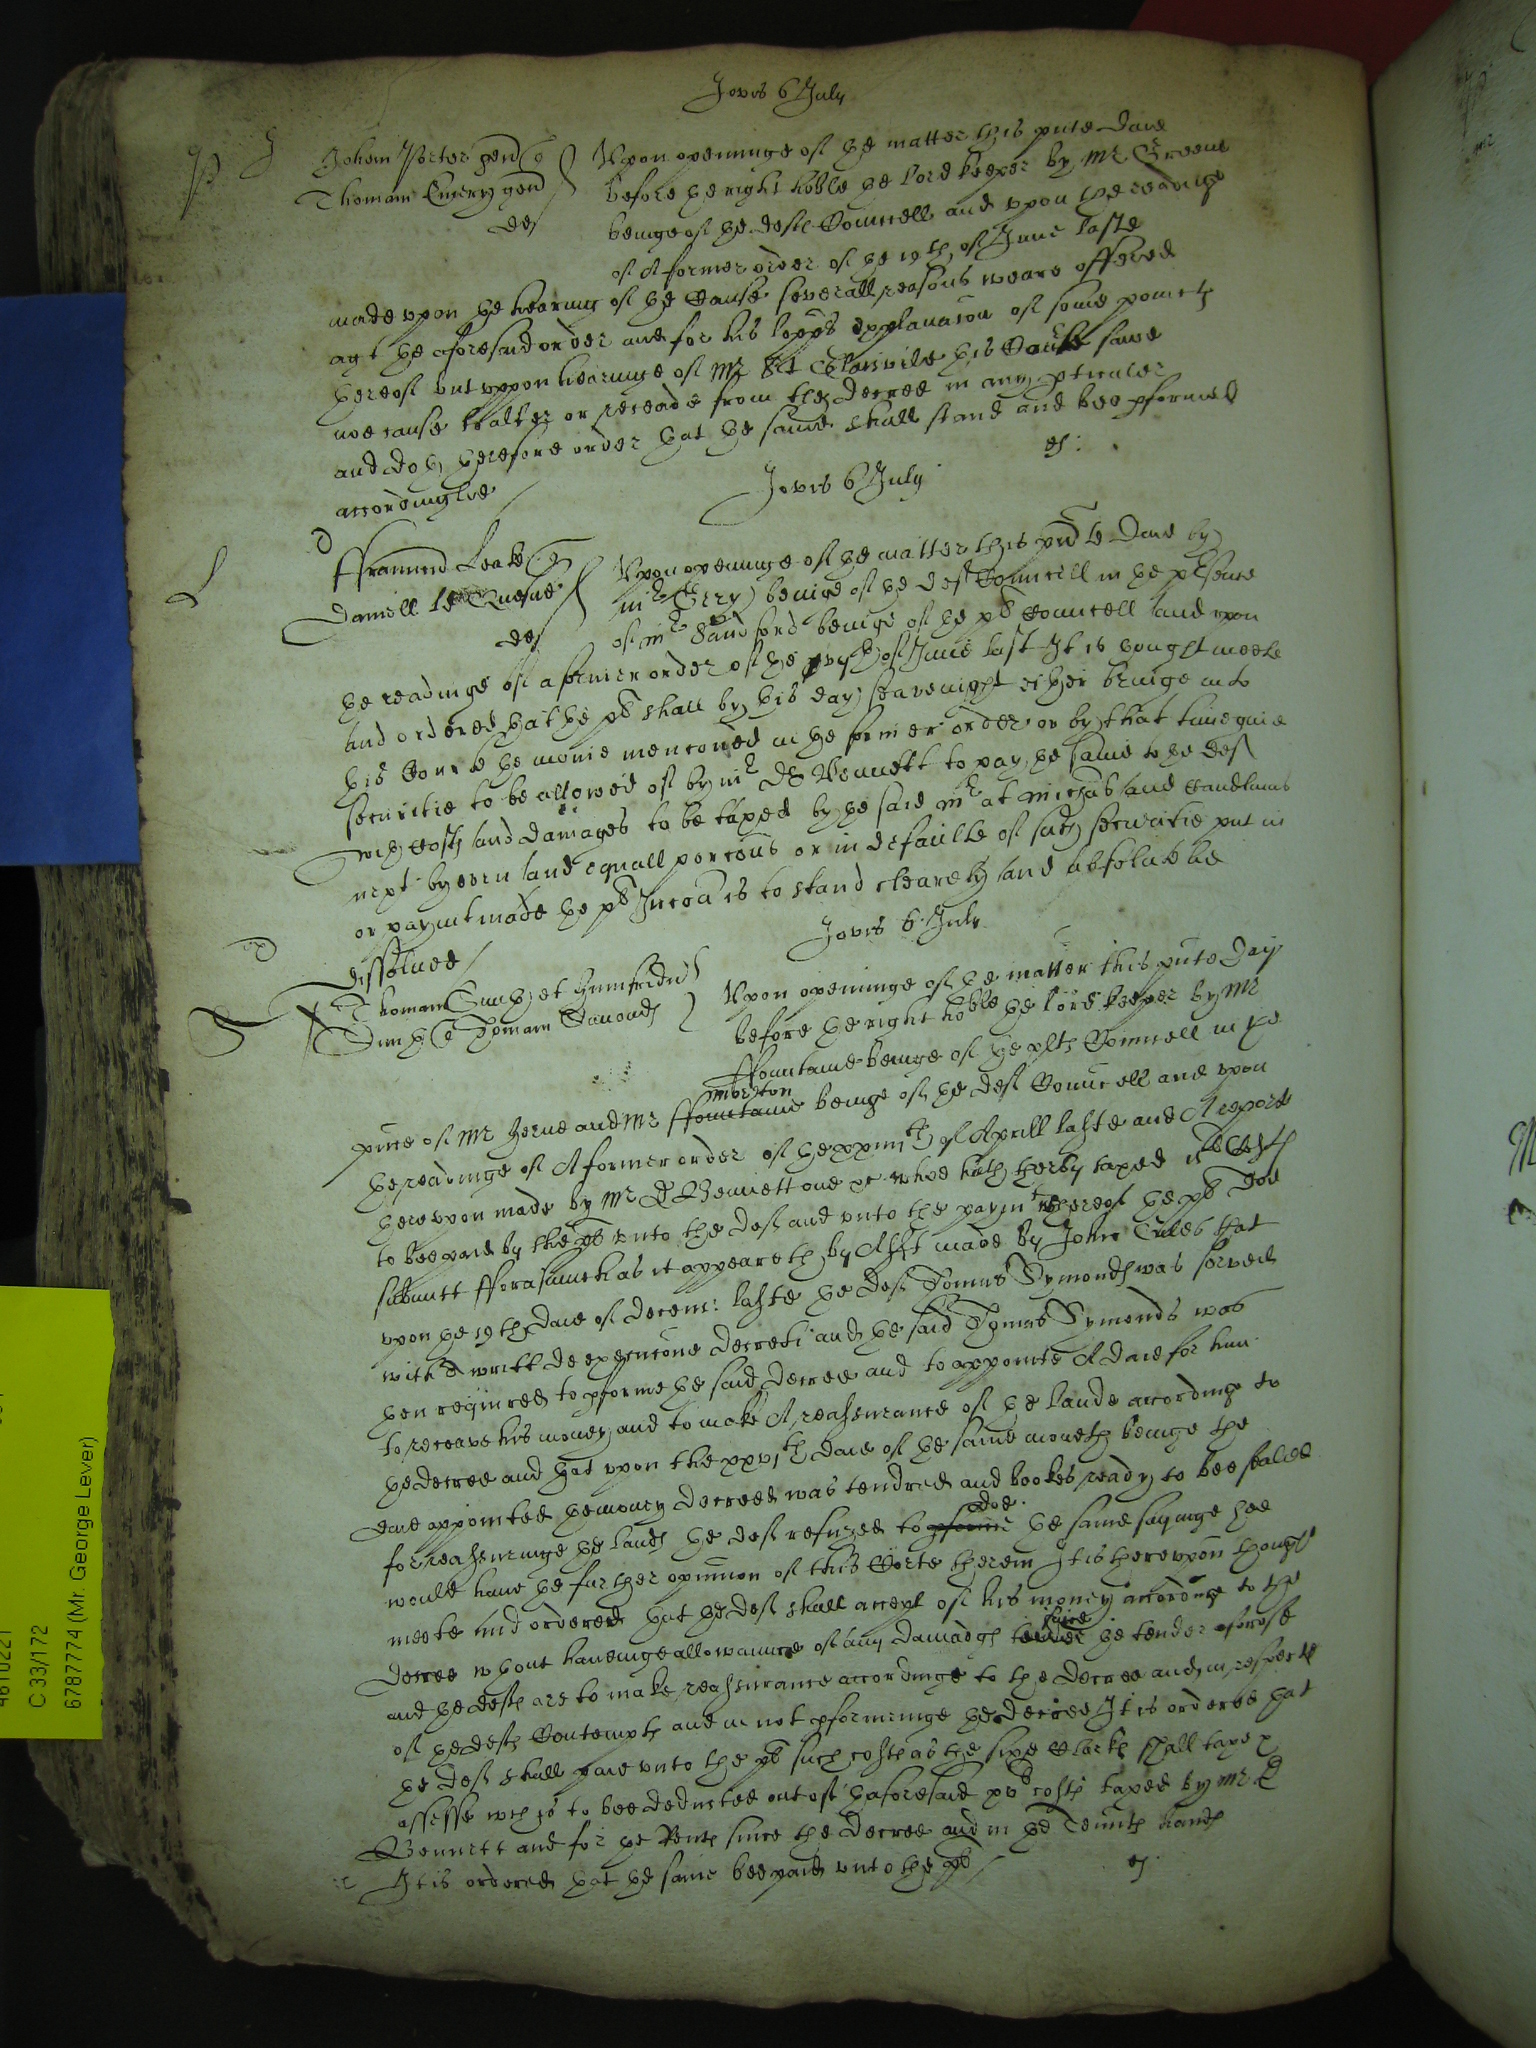 Jovis 6 July
P J
Johem Porter gen q
Thomam Emery gen
def
Upon openinge of the matter this pnte daie
before the right hoble the lord keeper by Mr Greene
beinge of the defts Councell and upon the readinge
of A former order of the 19th of June laste
made upon the hearing of the Cause severall reasons weare offered
agt the aforesaid order and for his lopps explanacon of some points
thereof but uppon hearinge of Mr Glanvile his Lopp sawe
noe cause to alter or receade from the decree in any pticuler
and doth therefore order that the same shall stand and bee pformed
accordinglie
Jovis 6 July
L
ffrancund Leake q
Daniell le Quesne
def
Upon openinge of the matter this pnte daie by
mr beinge of the deft Councell in the psence
of mr Sandford beinge of the pl Councell and upon
the readinge of a former order of the of June last It is thought meete
and ordered that the pl shall by this day seavenight either bringe into
this Courte the monie mencioned in the former order or by that time give
securitie to be allowed of by mr Dr Bennett to pay the same to the def
with costs and damages to be taxed by the said mr at michas and Candlemas
next by even and equall porcons or in defaulte of such securitie put in
or paymt made the pl Inion is to stand clearely and absolutelie
dissolved
Jovis 6 July
Thomam et Humfridu
q Thomam Simonds
Upon openinge of the matter this pnte day
before the right hoble the lord keeper by Mr
ffountaine beinge of the plts Councell in the
pnce of Mr Herne and Mr ffountaine beinge of the def Councell and upon
the readinge of A former order of the xxiiijth of Aprill laste and A reporte
thereupon made by Mr D Bennett one &c whoe hath therby taxed Costs
to bee paid by the pl unto the def and unto the paymt thereof the pl doe
submitt fforasmuch as it appeareth by Afft made by John that
upon the 19th daie of decem: laste the def Thomas Symonds was served
with A writt de execucione decreti and the said Thomas Symonds was
then required to pforme the said decree and to appointe A daie for him
to receave his money and to make A reassurance of the lande accordinge to
the decree and that upon the xxvjth daie of the same moneth beinge the
daie appointed the money decreed was tendred and bookes ready to bee sealed
for reassuringe the lands the def refused to pforme doe the same sayinge hee
would have the further opinion of this Corte therein It is thereupon thought
meete and ordered that the def shall accept of his money accordinge to the
decree wthout haveinge allowannce of any damadgs since the tender
and the defts are to make reassurance accordinge to the decree and in respecte
of the defts Contempts and in not pforminge the decree It is ordered that
the def shall paie unto the pl such costs as the sixe Clarks shall taxe &
assesse wch is to bee deducted out of thaforesaid costs taxed by Mr D
Bennett and for the Rents since the decree and in the Tennts hands
It is ordered that the same bee paid unto the pl